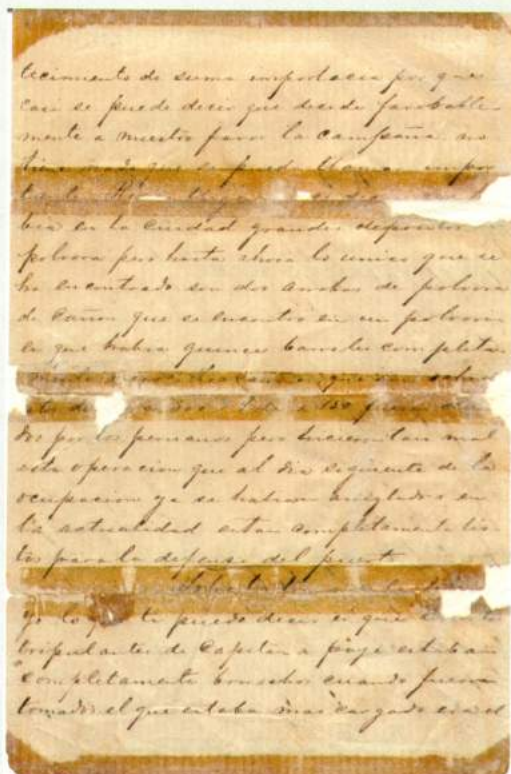 tecimiento de suma importacia por que
casi se puede decir que decide favorable
mente a nuestro favor la campaña no
tiene nada que se pueda llamar impor
bia en la ciudad grandes depositos
polvora pero hasta ahora lo unico que se
ha encontrado son dos arrobas de polvora
de cañon que se encontro en un polvorin
en que habia quince barriles completa
150 fueron
dos por los peruanos pero hicieron tan mal
esta operacion que al dia siguiente de la
ocupacion ya se habian arreglados en
la actualidad estan completamente lis
tos para la defensa del puerto
yo lo que te puedo decir es que
tripulantes de Capitan a paje estaban
completamente borrachos cuando fueron
tomados el que estaba mas cargado era el